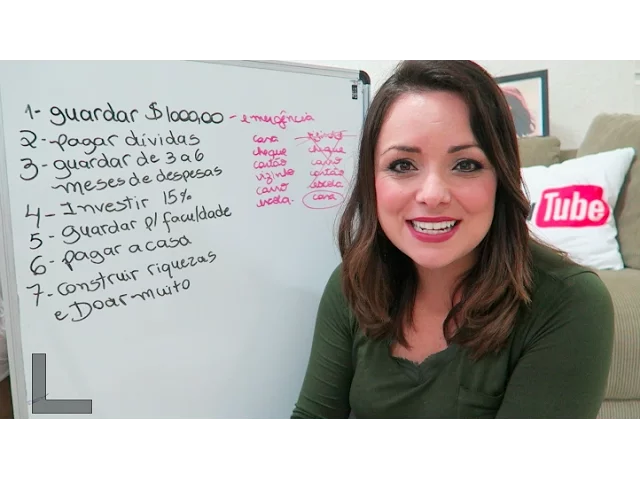 1- guardar $1000,00 - emergência
2- pagar dívidas
3- guardar de 3 a 6
meses de despesas
4- Investir 15%
5- guardar p/ faculdade
6- pagar a casa
7- construir riquezas
e Doar muito
casa
cheque
cartão
vizinho
carro
escola.
vizinho
cheque
carro
cartão
escola
casa
Tube